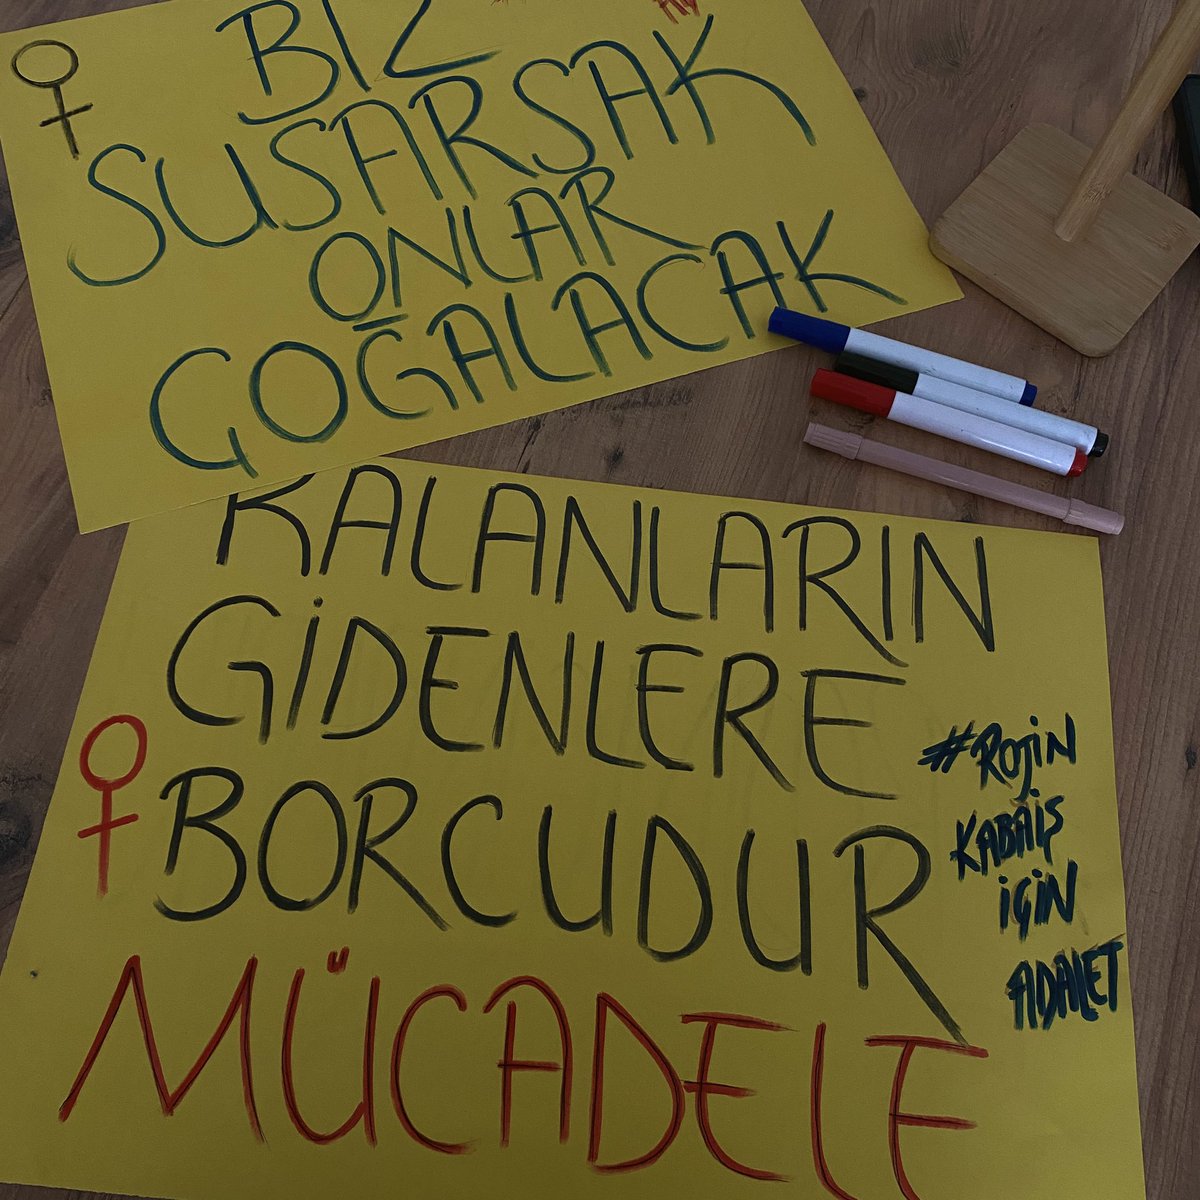 BİZ
SUSARSAK
ONLAR
ÇOĞALACAK
KALANLARIN
GİDENLERE
BORCUDUR
MÜCADELE
#ROJİN
KABAİŞ
İÇİN
ADALET